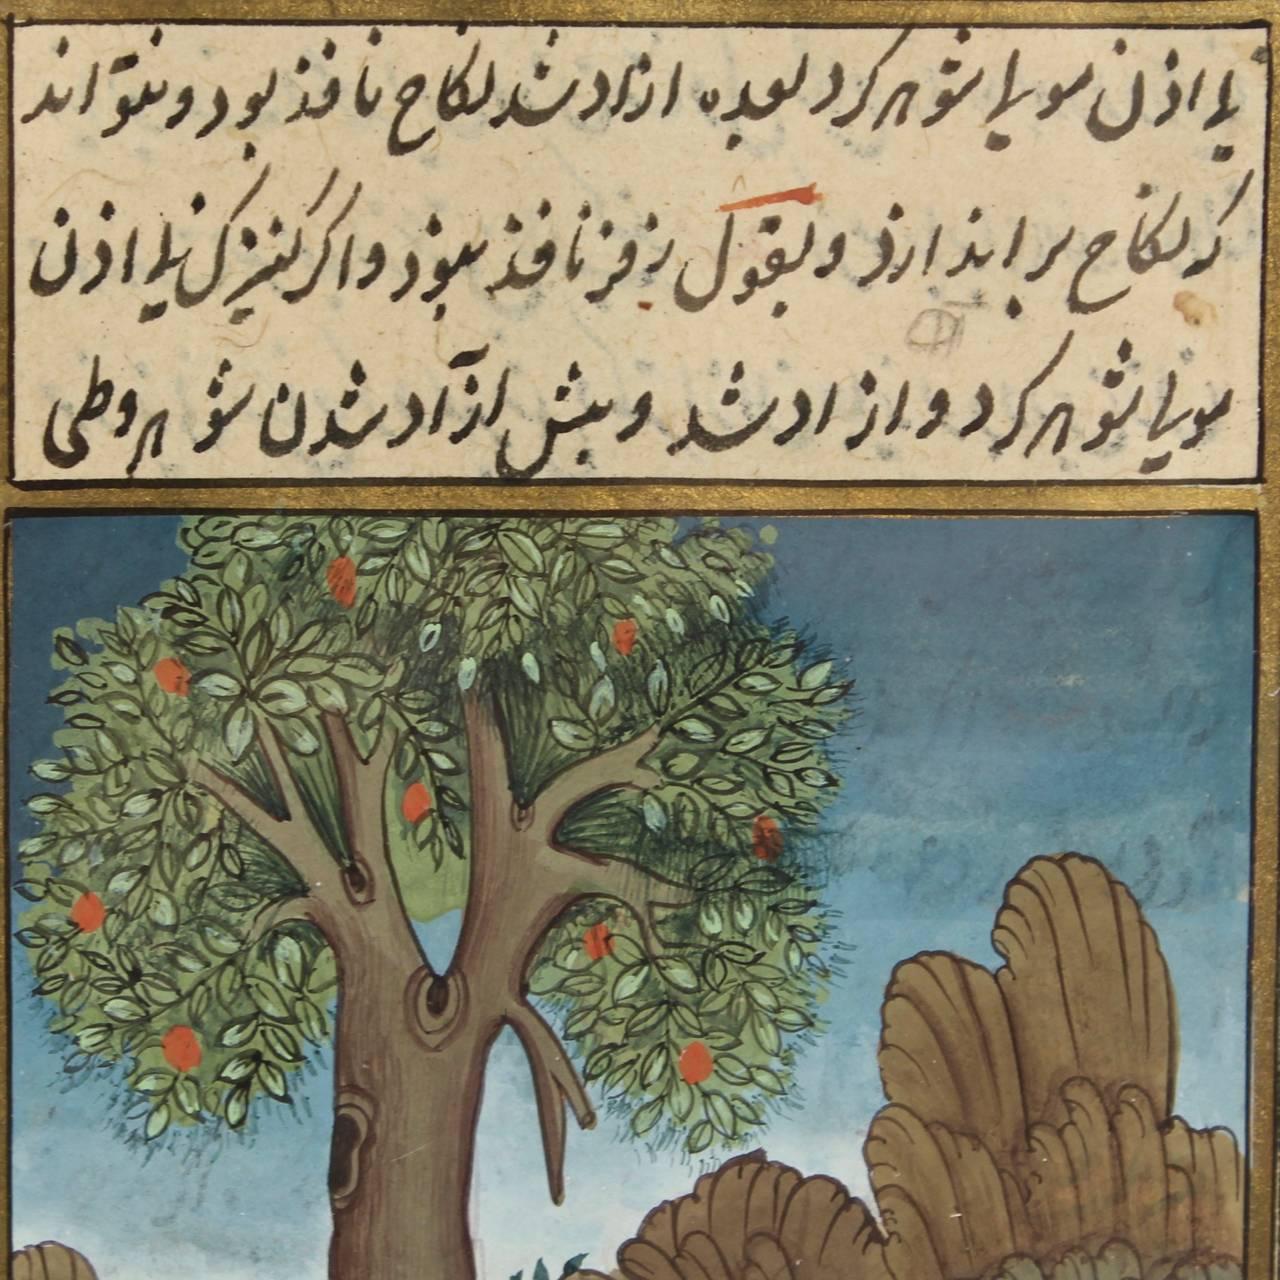 بی اذن مولیا شوهر کرد بعده ازاد شد نکاح نافذ بود و نتواند
که نکاح بر اندازد و بقول زفر نافذ نبود و اگر کنیزک بی اذن
مولیا شوهر کرد و ازاد شد و پیش از آزاد شدن شوهر وطی